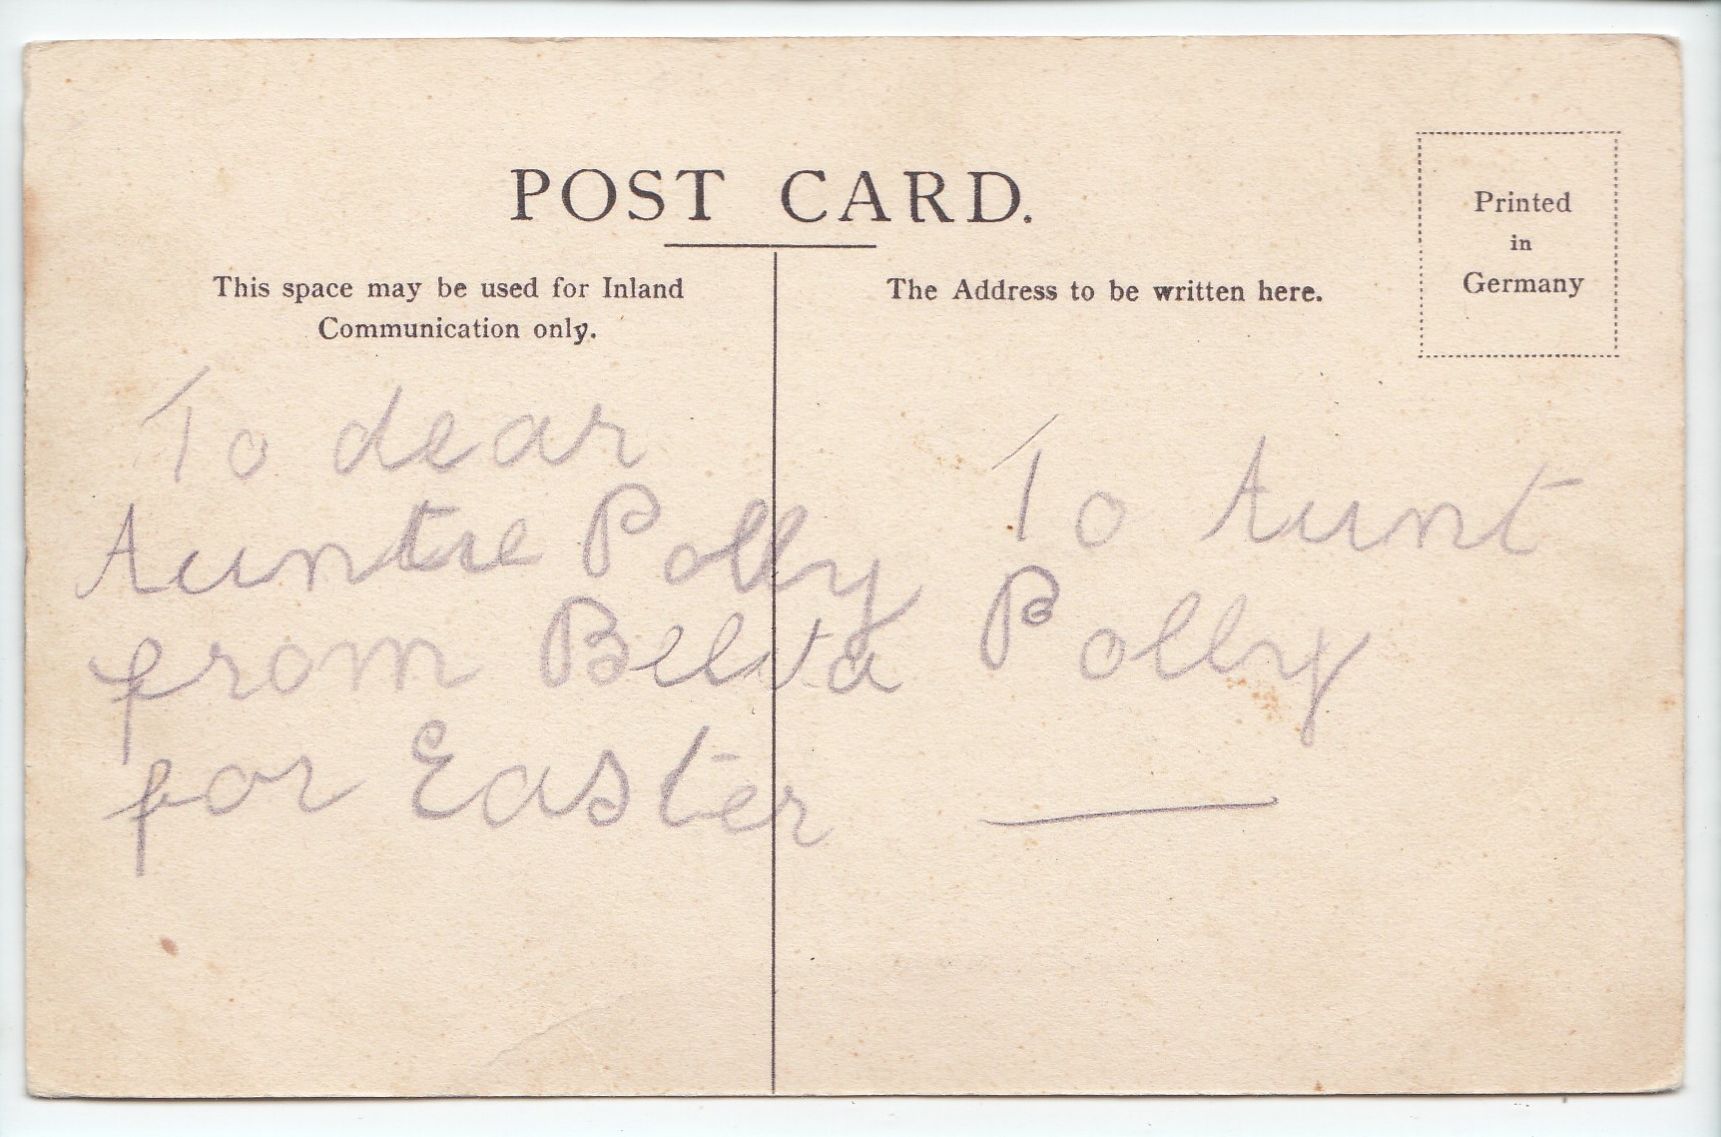 POST CARD.
This space may be used for Inland
Communication only.
To dear
Auntie Polly
from
for Easter
The Address to be written here.
To Aunt
Polly
Printed
in
Germany